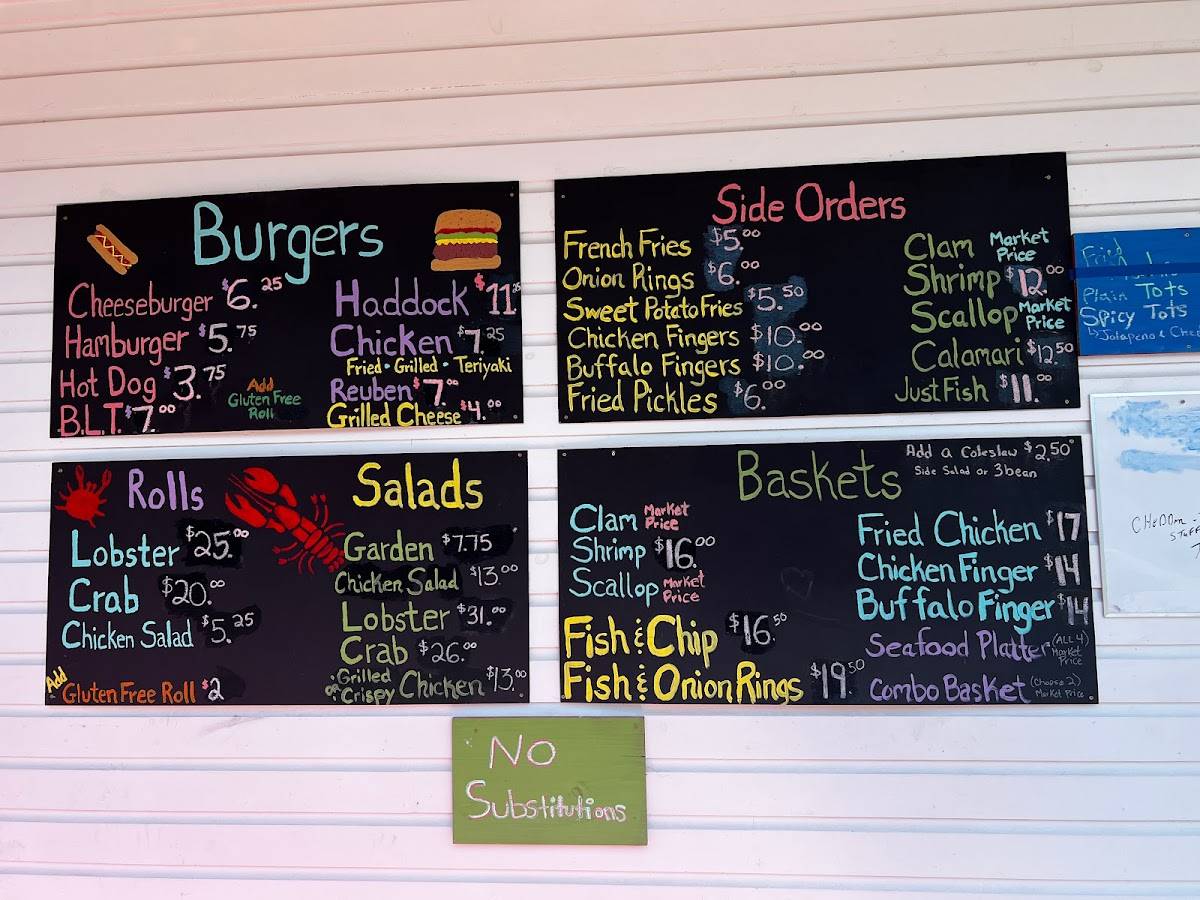 Burgers
Cheeseburger $6.25
Hamburger $5.75
Hot Dog $3.75
B.L.T. $7.00
Add
Gluten Free
Roll
Haddock $11.25
Chicken $7.25
Fried • Grilled • Teriyaki
Reuben $7.00
Grilled Cheese $4.00
Side Orders
French Fries $5.00
Onion Rings $6.00
Sweet Potato Fries $5.50
Chicken Fingers $10.00
Buffalo Fingers $10.00
Fried Pickles $6.00
Clam Market Price
Shrimp $12.00
Scallop Market Price
Calamari $12.50
Just Fish $11.00
Fried
Plain Tots
Spicy Tots
Rolls
Lobster $25.00
Crab $20.00
Chicken Salad $5.25
Add Gluten Free Roll $2
Salads
Garden $7.75
Chicken Salad $13.00
Lobster $31.00
Crab $26.00
Grilled or Crispy Chicken $13.00
Baskets
Add a Coleslaw $2.50
Side Salad or 3bean
Clam Market Price
Shrimp $16.00
Scallop Market Price
Fish & Chip $16.50
Fish & Onion Rings $19.50
Fried Chicken $17
Chicken Finger $14
Buffalo Finger $14
Seafood Platter (ALL 4) Market Price
Combo Basket (Choose 2) Market Price
No
Substitutions